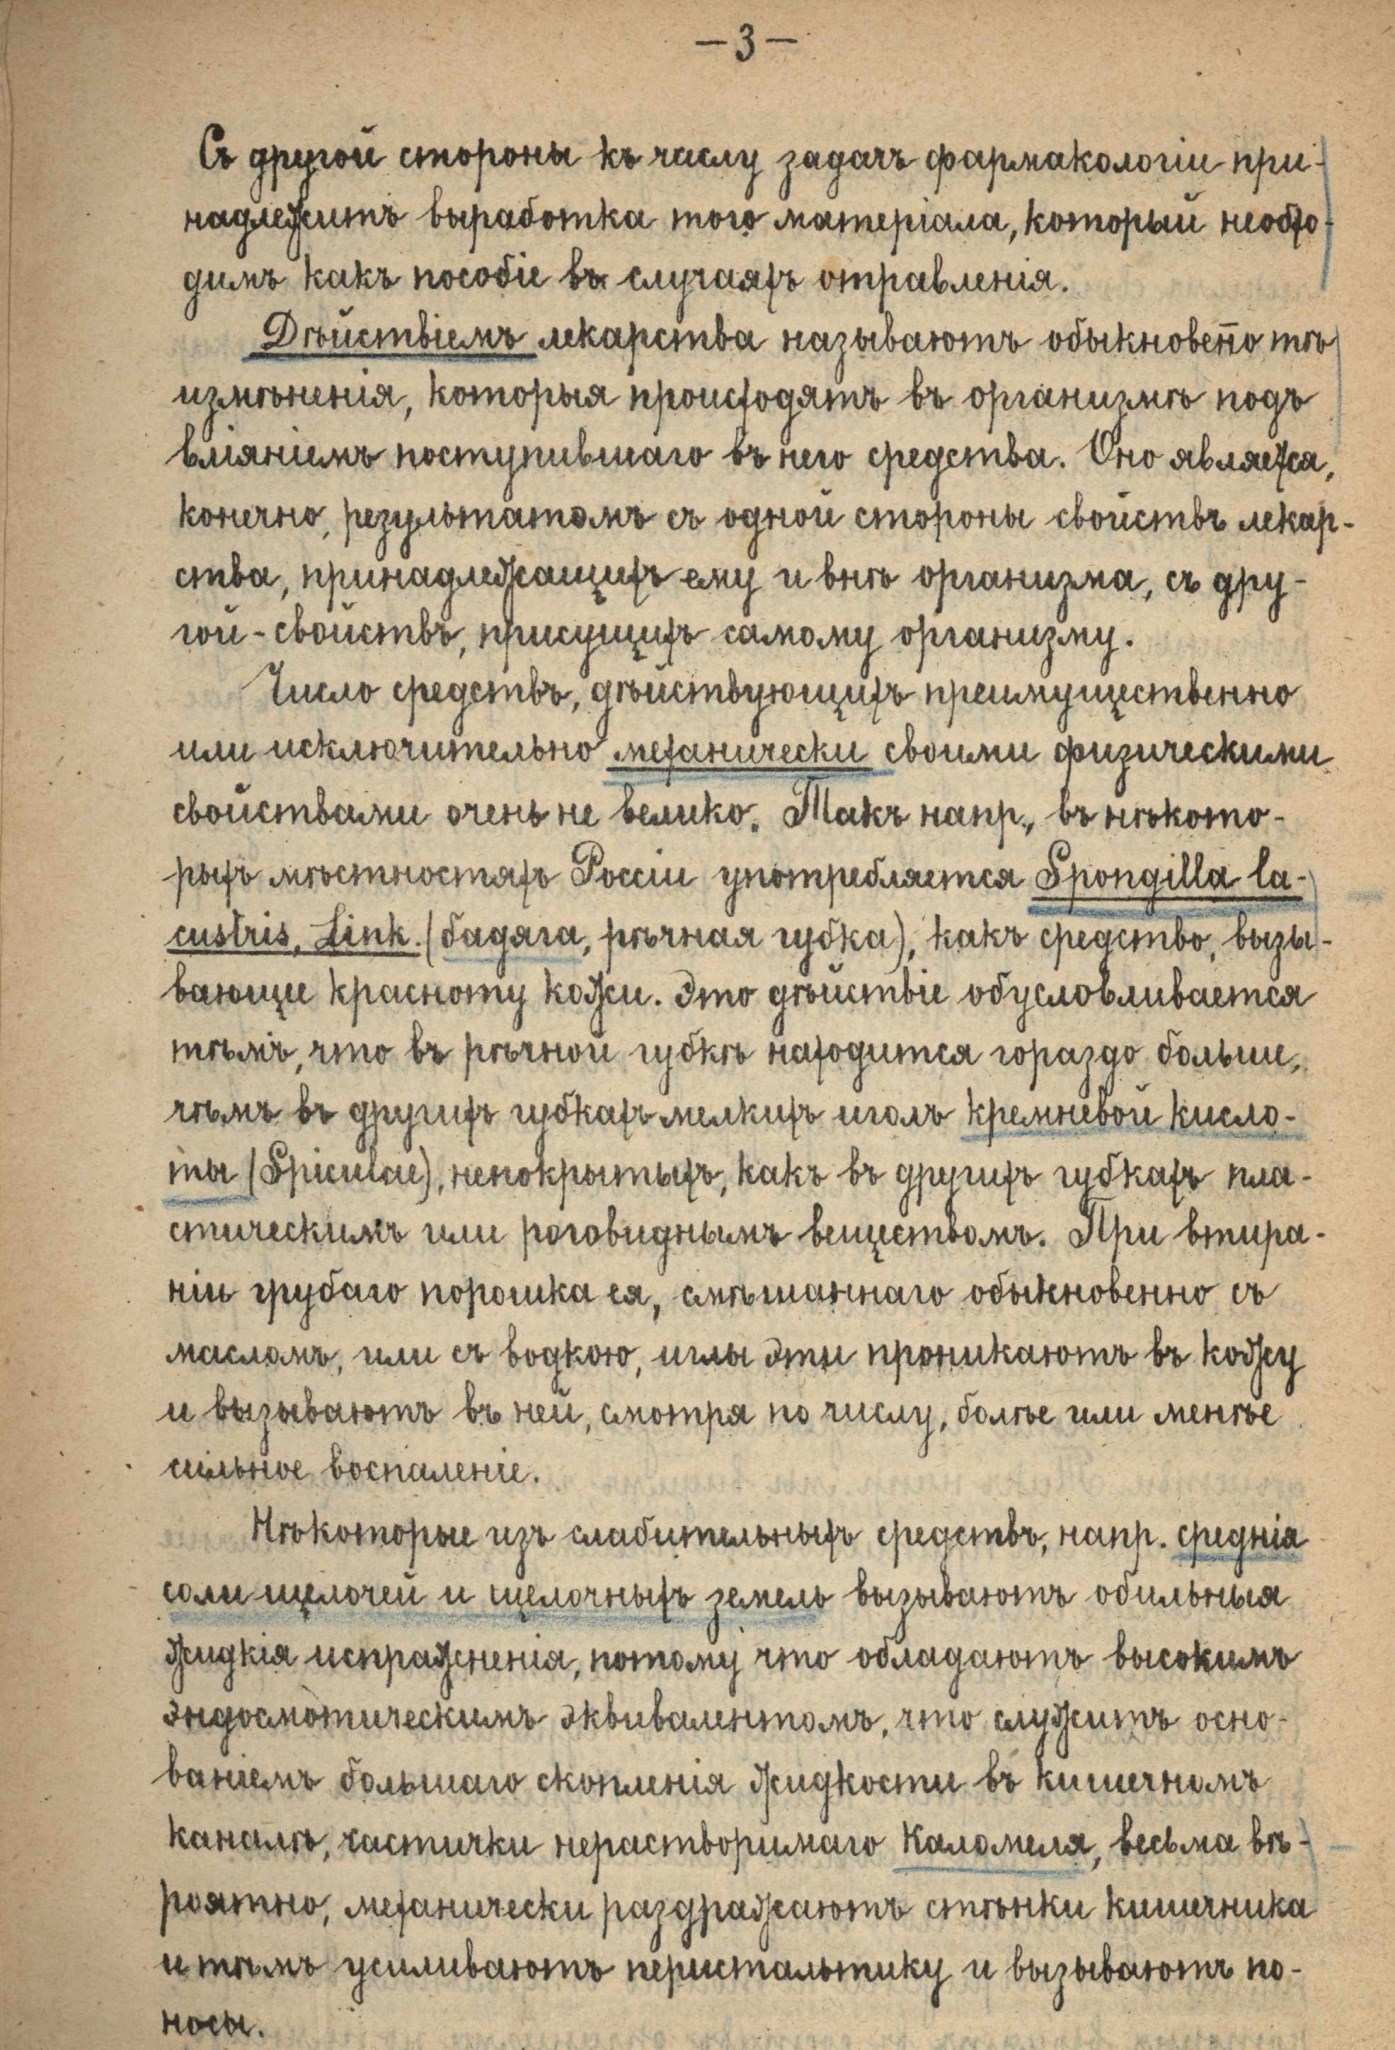 —3—
Съ другой стороны къ числу задачъ фармакологіи при-
надлежитъ выработка того матеріала, который необхо-
димъ какъ пособіе въ случаяхъ отравленія.
Дѣйствіемъ лекарства называютъ обыкновен̅о тѣ
измѣненія, которыя происходятъ въ организмѣ подъ
вліяніемъ поступившаго въ него средства. Оно является,
конечно, результатомъ съ одной стороны свойствъ лекар-
ства, принадлежащихъ ему и внѣ организма, съ дру-
гой-свойствъ, присущихъ самому организму.
Число средствъ, дѣйствующихъ преимущественно
или исключительно механически своими физическими
свойствами очень не велико. Такъ напр., въ нѣкото-
рыхъ мѣстностяхъ Россіи употребляется Spongilla la-
custris, Link. (бадяга, рѣчная губка), какъ средство, вызы-
вающее красноту кожи. Это дѣйствіе обусловливается
тѣмъ, что въ рѣчной губкѣ находится гораздо больше,
чѣмъ въ другихъ губкахъ мелкихъ иголъ кремневой кисло-
ты (Spiculae), непокрытыхъ, какъ въ другихъ губкахъ пла-
стическимъ или роговиднымъ веществомъ. При втира-
ніи грубаго порошка ея, смѣшаннаго обыкновенно съ
масломъ, или съ водкою, иглы эти проникаютъ въ кожу
и вызываютъ въ ней, смотря по числу, болѣе или менѣе
сильное воспаленіе.
Нѣкоторые изъ слабительныхъ средствъ, напр. среднія
соли щелочей и щелочныхъ земель вызываютъ обильныя
жидкія испражненія, потому что обладаютъ высокимъ
эндосмотическимъ эквивалентомъ, что служитъ осно-
ваніемъ большаго скопленія жидкости въ кишечномъ
каналѣ, частички нерастворимаго Каломеля, весьма вѣ-
роятно, механически раздражаютъ стѣнки кишечника
и тѣмъ усиливаютъ перистальтику и вызываютъ по-
носы.